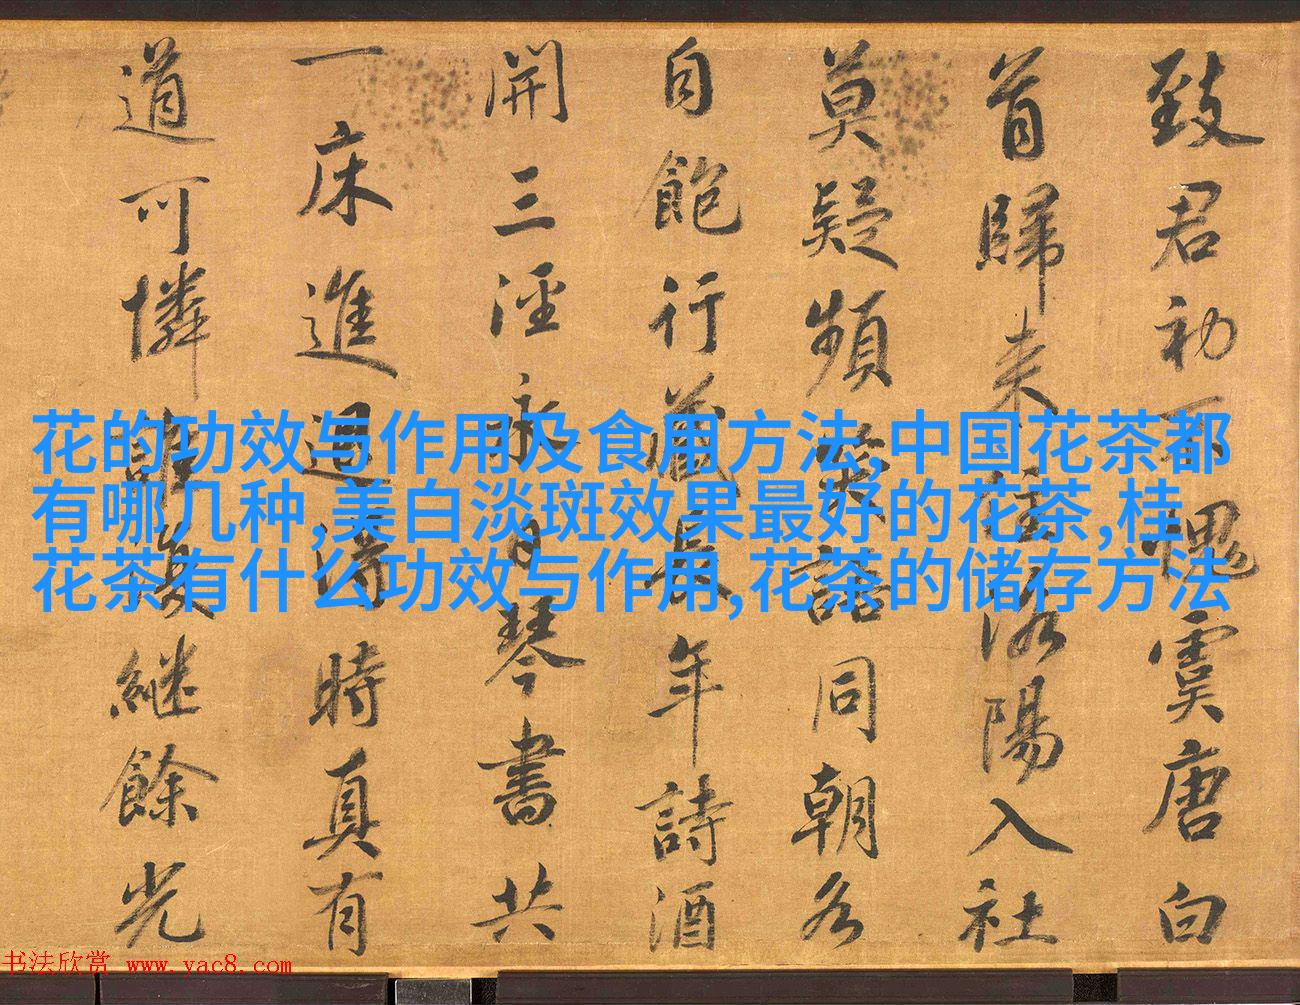 致君初不愧虞唐白
首歸来住洛陽入社
莫疑頻笑語同朝各
自飽行藏長年詩酒
開三涇永日琴書共
一床進退得時真有
道可憐誰繼餘光
花的功效与作用及食用方法,中国花茶都
有哪几种,美白淡斑效果最好的花茶,桂
花茶有什么功效与作用,花茶的储存方法
书法欣赏 www.yac8.com